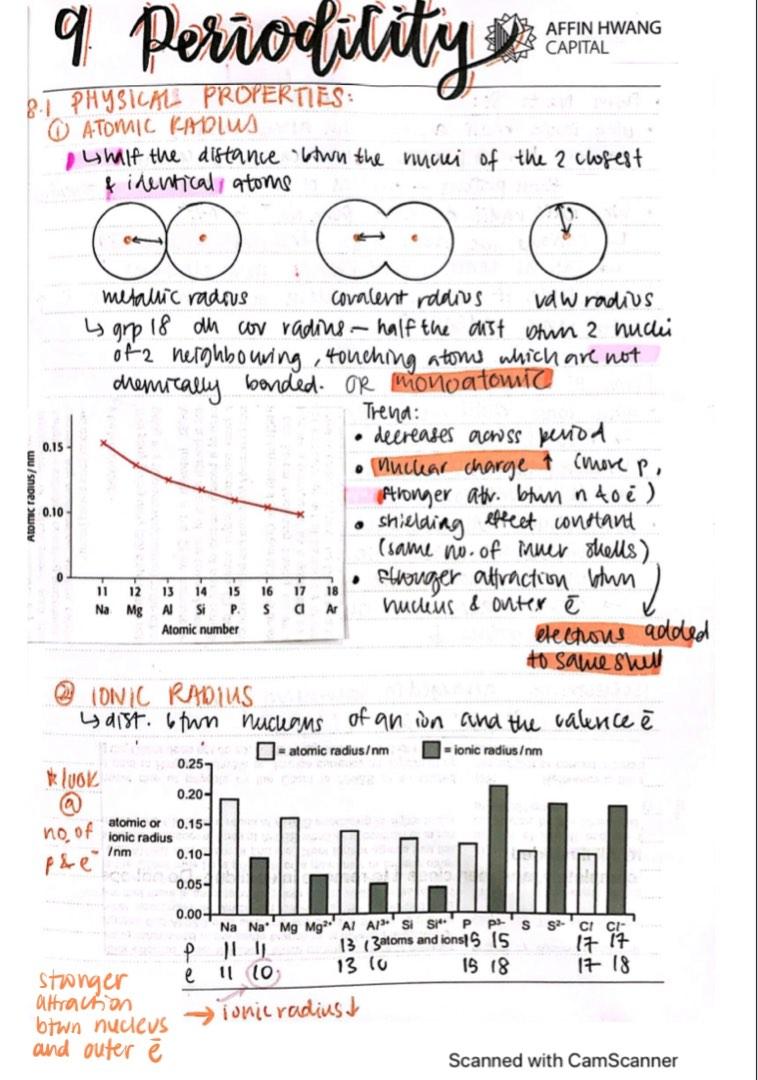 9. Periodicity
AFFIN HWANG
CAPITAL
8.1 PHYSICAL PROPERTIES:
① ATOMIC RADIUS
↳ half the distance btwn the nuclei of the 2 closest
& identical atoms
metallic radius covalent radius vdw radius
↳ grp 18 dh cov radius – half the dist btwn 2 nuclei
of 2 neighbouring, touching atoms which are not
chemically bonded. OR monoatomic
Atomic radius/nm
0.15
0.10
0
11 12 13 14 15 16 17 18
Na Mg Al Si P. S Cl Ar
Atomic number
Trend:
• decreases across period
• nuclear charge ↑ (more p,
stronger attr. btwn n & o ē)
• shielding effect constant
(same no. of inner shells)
• stronger attraction btwn
nucleus & outer ē
electrons added
to same shell
② IONIC RADIUS
↳ dist. btwn nucleus of an ion and the valence ē
= atomic radius/nm = ionic radius/nm
* look
@
no. of
p & e⁻
atomic or
ionic radius
/nm
0.25
0.20
0.15
0.10
0.05
0.00
Na Na⁺ Mg Mg²⁺ Al Al³⁺ Si Si⁴⁺ P P³⁻ S S²⁻ Cl Cl⁻
atoms and ions
p 11 11 13 13 15 15 17 17
e 11 10 13 10 15 18 17 18
→ ionic radius ↓
stronger
attraction
btwn nucleus
and outer ē
Scanned with CamScanner